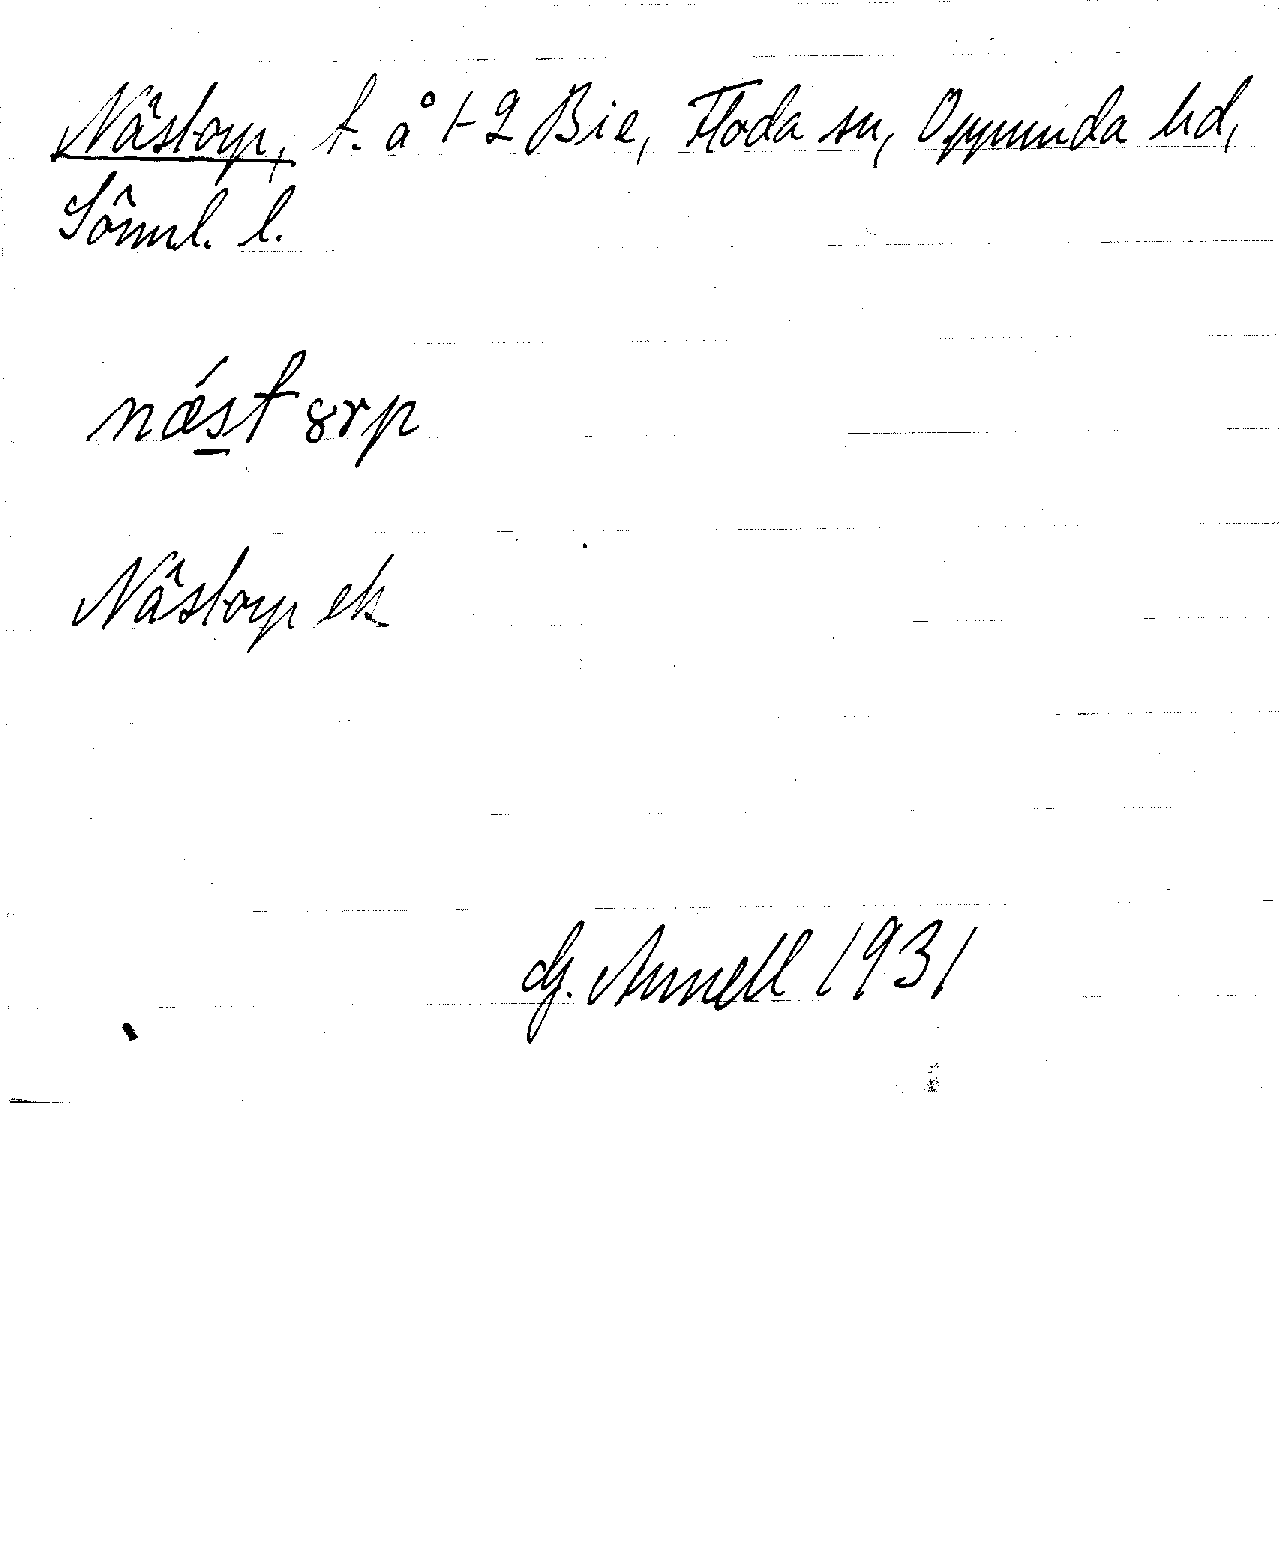 Nästorp, t. å 1-2 Bie, Floda sn, Oppunda hd,
Sörml. l.
nǽstꝏrp
Nästorp ek
G. Annell 1931